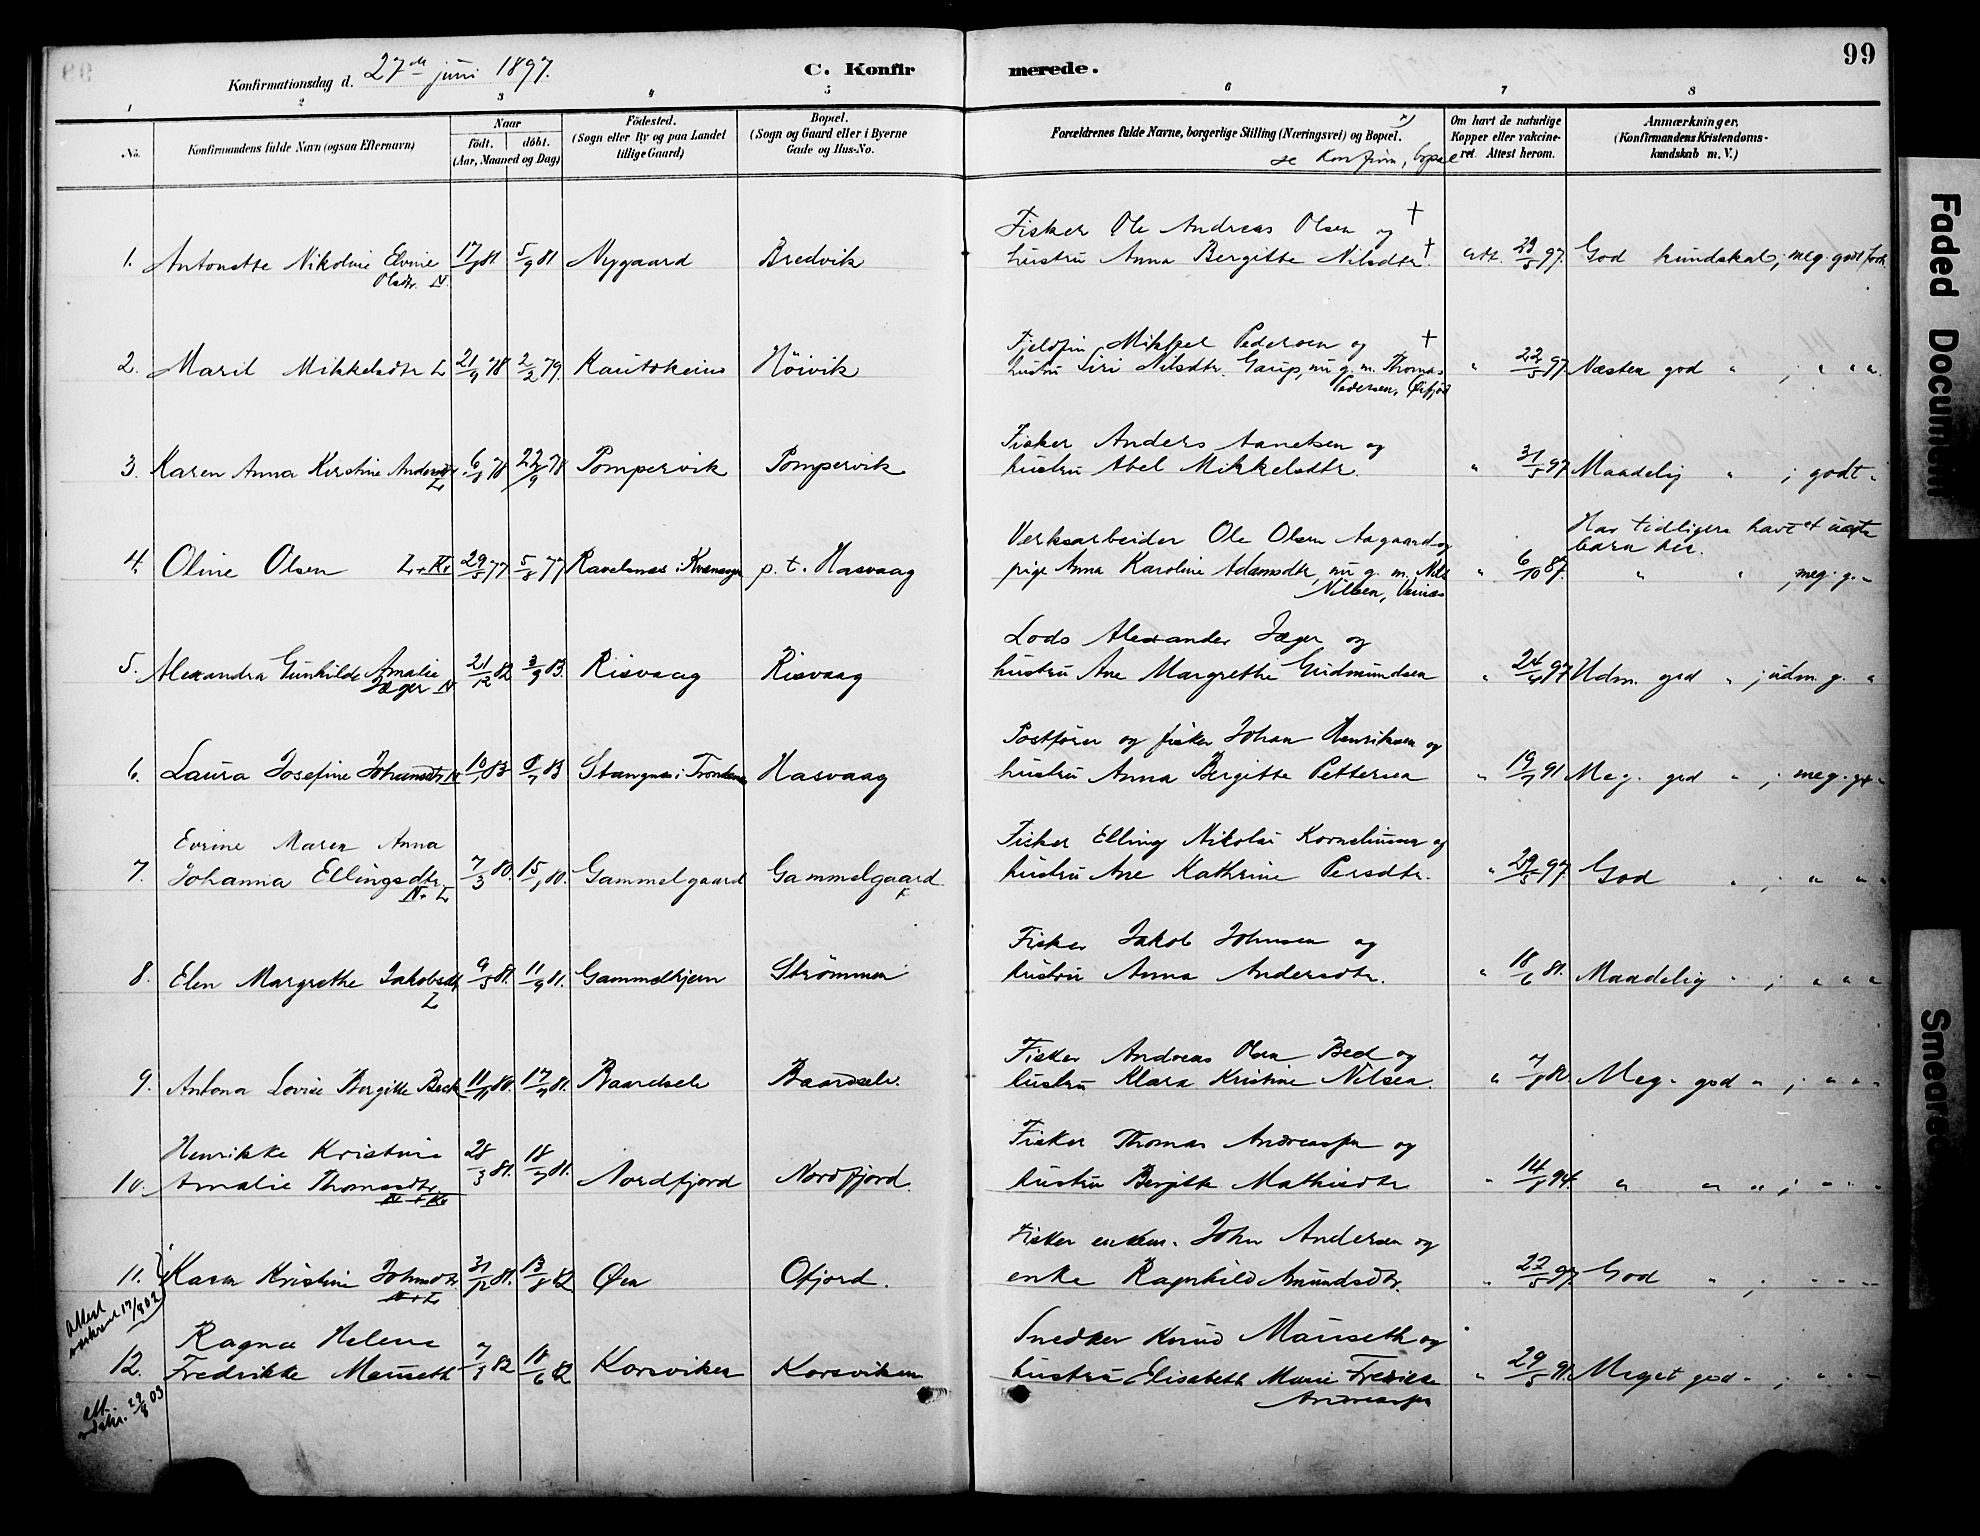 99
Konfirmationsdag d. 27de juni 1897.
C. Konfirmerede.
1 2 3 4 5 6 7 8
No.
Konfirmandens fulde Navn (ogsaa Efternavn)
Naar
födt. döbt.
(Aar, Maaned og Dag)
Födested.
(Sogn eller By og paa Landet
tillige Gaard)
Bopæl.
(Sogn og Gaard eller i Byerne
Gade og Hus-No.
Forældrenes fulde Navne, borgerlige Stilling (Næringsvei) og Bopæl.
se Konfirm. bopæl
Om havt de naturlige
Kopper eller vakcineret
Attest herom.
Anmærkninger.
(Konfirmandens Kristendomskundskab
m. V.)
1. Antonette Nikoline Elvine
Olsdtr. N.
5/9 81 Nygaard Bredvik
Fisker Ole Andreas Olsen og †
hustru Anna Bergitte Nilsdtr. †
att. 29/5 97. God kundskab; meg. godt forh.
2. Marit Mikkelsdtr L 21/9 78 2/2 79. Kautokeino Höivik
Fjeldfin Mikkel Pedersen og †
hustru Siri Nilsdtr. Gaup, nu g. m. Thomas
Pedersen,
" 22/5 97 Næsten god " ; " " "
3. Karen Anna Kirstine Andersdtr.
L
78 22/9 78 Pompervik Pompervik
Fisker Anders Aanetsen og
hustru Abel Mikkelsdtr.
" 31/5 97 Maadelig " ; godt "
4. Oline Olsen L + Kv 29/5 77 5/8 77 Ravelsnæs i Kvænangen p. t. Hasvaag
Verksarbeider Ole Olsen Aagaard og
pige Anna Karoline Adamsdtr, nu g. m. Nils
Nilsen,
" 6/10 87.
Har tidligere havt et uægte
barn her.
" " ; meg. g. "
5. Alexandra Gunhilde Amalie
Jæger N
21/12 82 3/9 83. Risvaag Risvaag
Lods Alexander Jæger og
hustru Ane Margrethe Gudmundsen
" 24/4 97 Udm. god " ; udm. g. "
6. Laura Josefine Johansdtr N 83 83 Stangnes i Trondenes Hasvaag
Postfører og fisker Johan Henriksen og
hustru Anna Bergitte Pettersen
" 91 Meg. god " ; meg. g. "
7. Evrine Maren Anna
Johanna Ellingsdtr.
N + L
7/3 80. 80. Gammelgaard Gammelgaard
Fisker Elling Nikolai Korneliussen og
hustru Ane Kathrine Persdtr.
" 29/5 97 God " ; " " "
8. Elen Margrethe Jakobsdtr
L
9/5 81. 11/9 81. Gammelhjem Strömmen
Fisker Jakob Johnsen og
hustru Anna Andersdtr.
" 18/6 81. Maadelig " ; " " "
9. Antona Lovise Bergitte Beck 80. 81. Baardsele Baardsele.
Fisker Andreas Olsen Beck og
hustru Klara Kristine Nilsen.
" Meg. god " ; " " "
10. Henrikke Kristine
Amalie Thomasdtr
N + Kv
28/3 81. 81. Nordfjord Nordfjord.
Fisker Thomas Andreassen og
hustru Bergitte Mathisdtr
" 94. " " " ; " " "
11. Karen Kristine Johnsdtr
N + L
31/12 81. 13/8 82 Øen Ofjord.
Fisker enkem. John Andersen og
enke Ragnhild Amundsdtr.
" 22/5 97 God " ; " " "
Attest
12. Ragna Helene
Fredrikke Mauseth
7/3 82 18/6 82 Korsviken Korsviken
Snedker Knud Mauseth og
hustru Elisabeth Marie Fredrikke
Andreassen
" 29/5 91. Meget god " ; " " "
att.
udskr. 29/8 03
Faded Document
Smeared